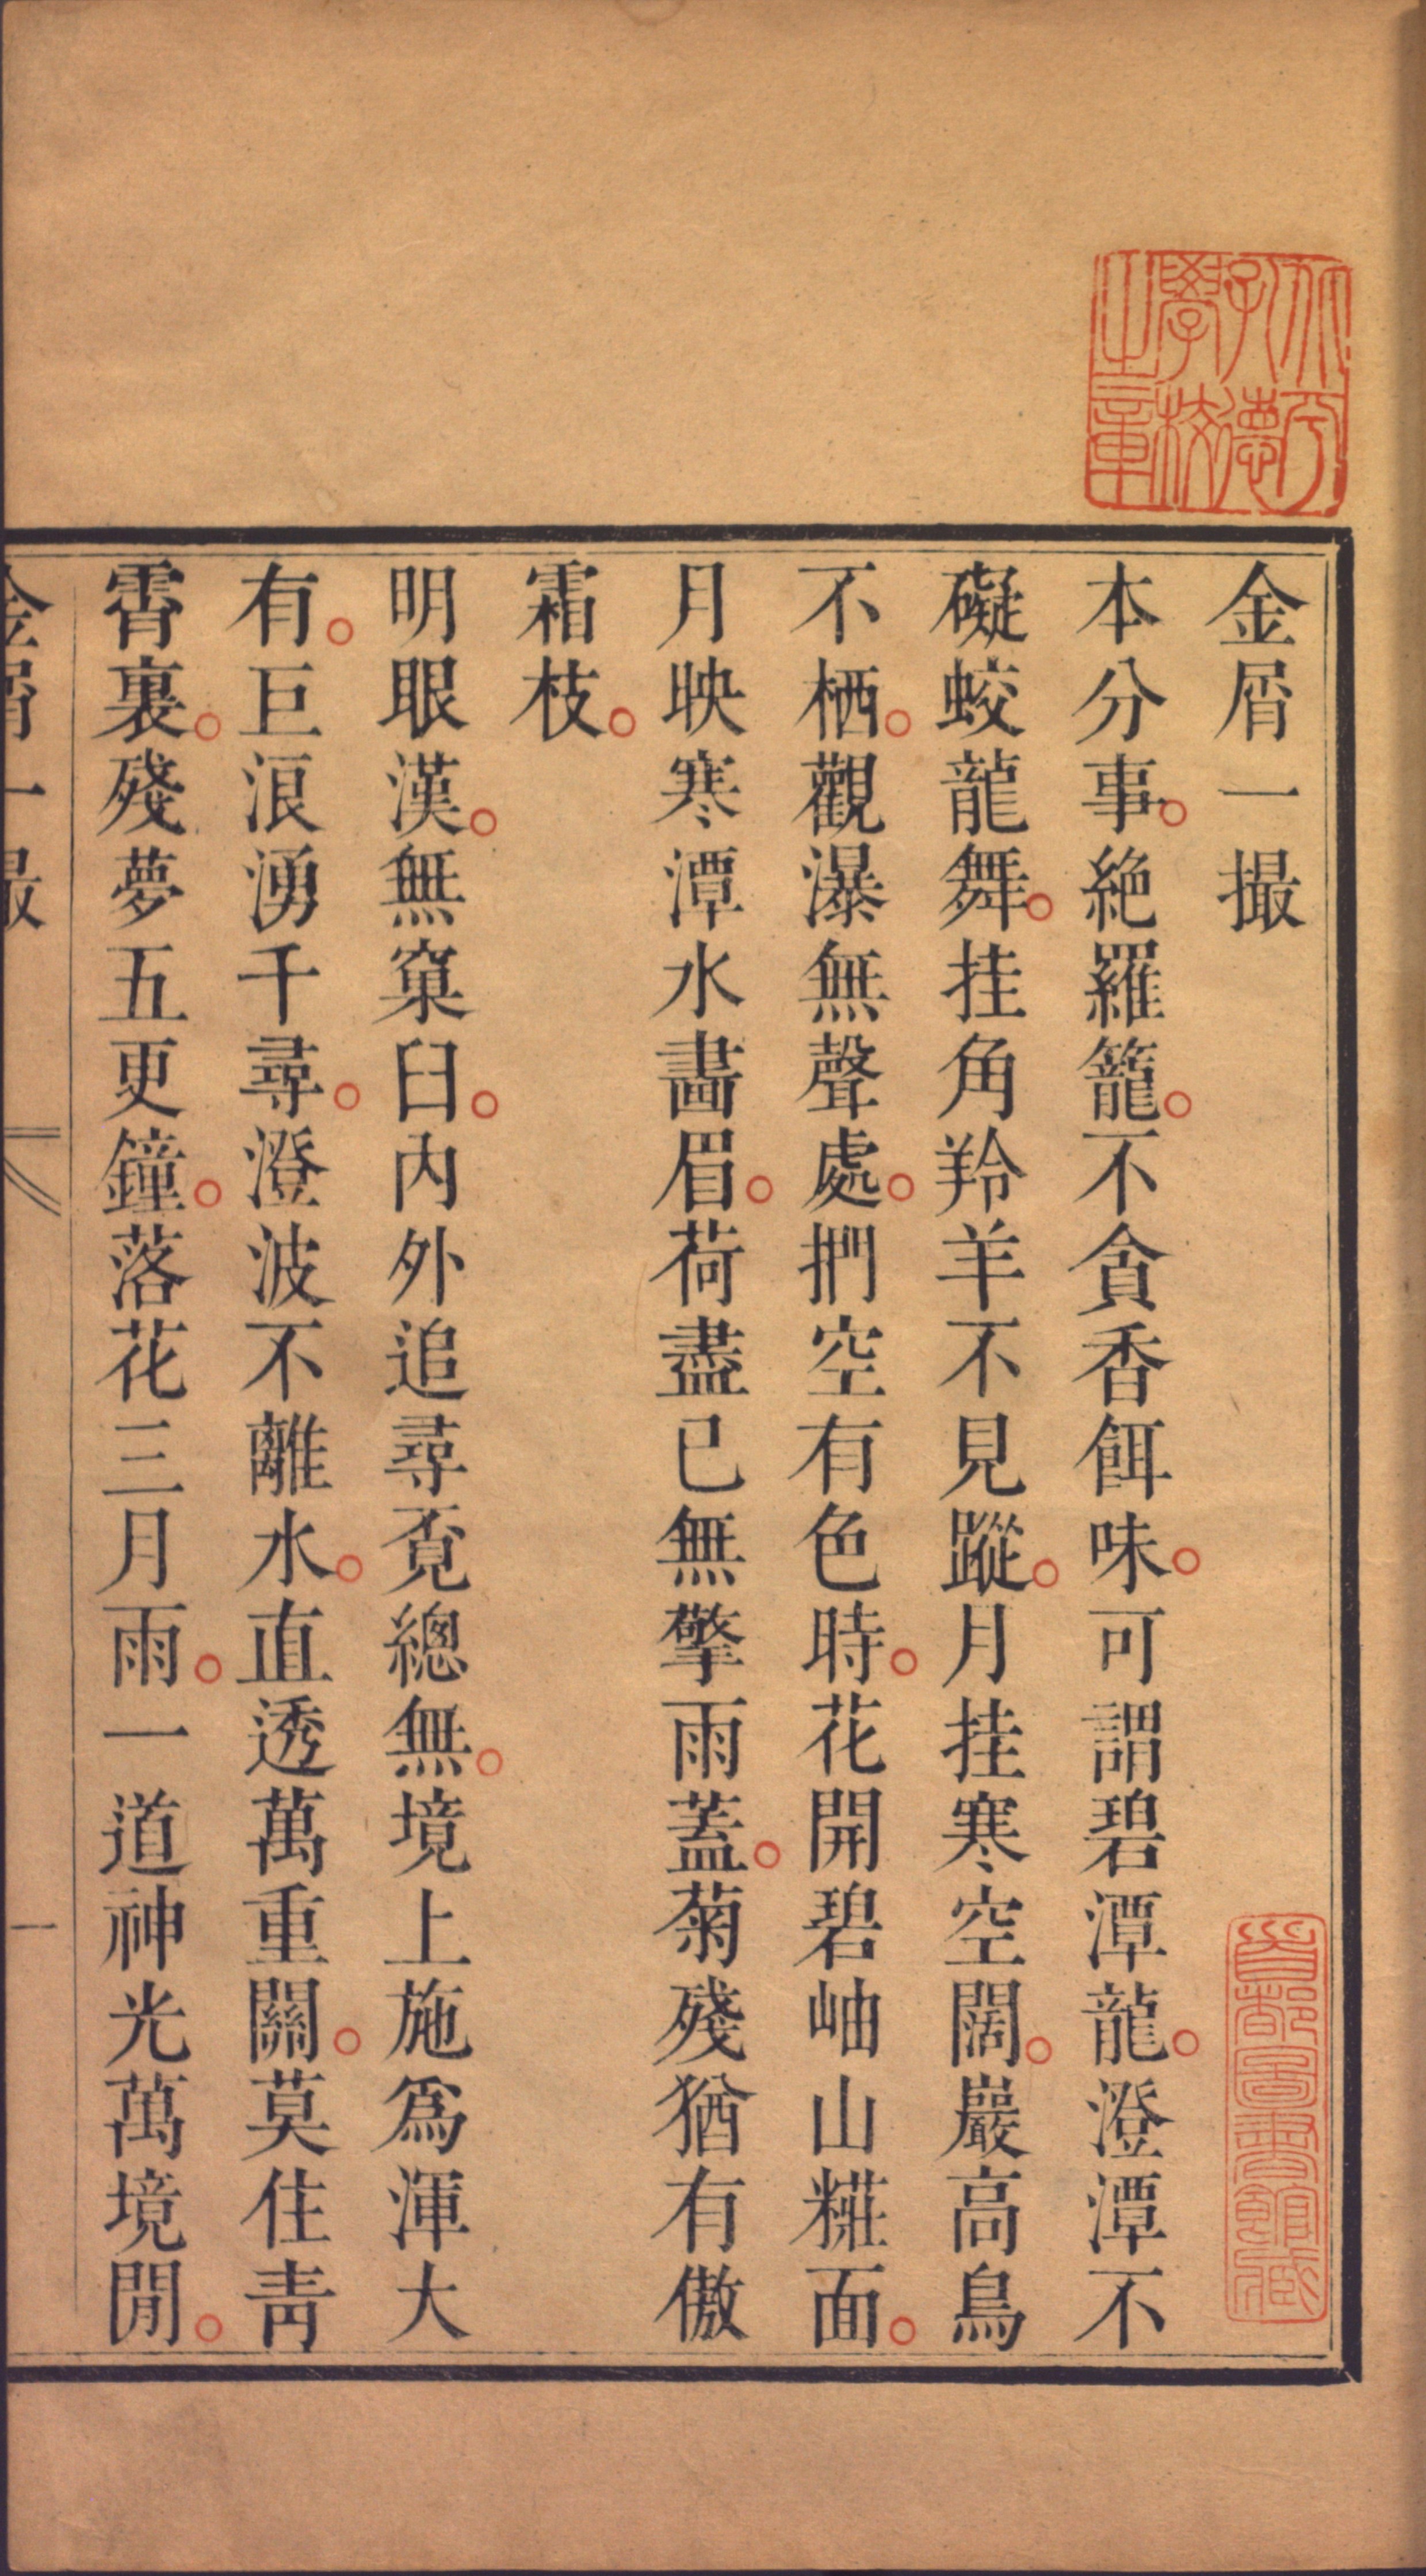 金屑一撮
本分事。絶羅籠。不貪香餌味。可謂碧潭龍。澄潭不
礙蛟龍舞。挂角羚羊不見蹤。月挂寒空闊。巖高鳥
不栖。觀瀑無聲處。捫空有色時。花開碧岫山糚面。
月映寒潭水畵眉。荷盡已無擎雨蓋。菊殘猶有傲
霜枝。
明眼漢。無窠臼。内外追尋覔總無。境上施爲渾大
有。巨浪湧千尋。澄波不離水。直透萬重關。莫住青
霄裏。殘夢五更鐘。落花三月雨。一道神光萬境閒。
金屑一撮
一
北平孔德學校之章
首都圖書館藏